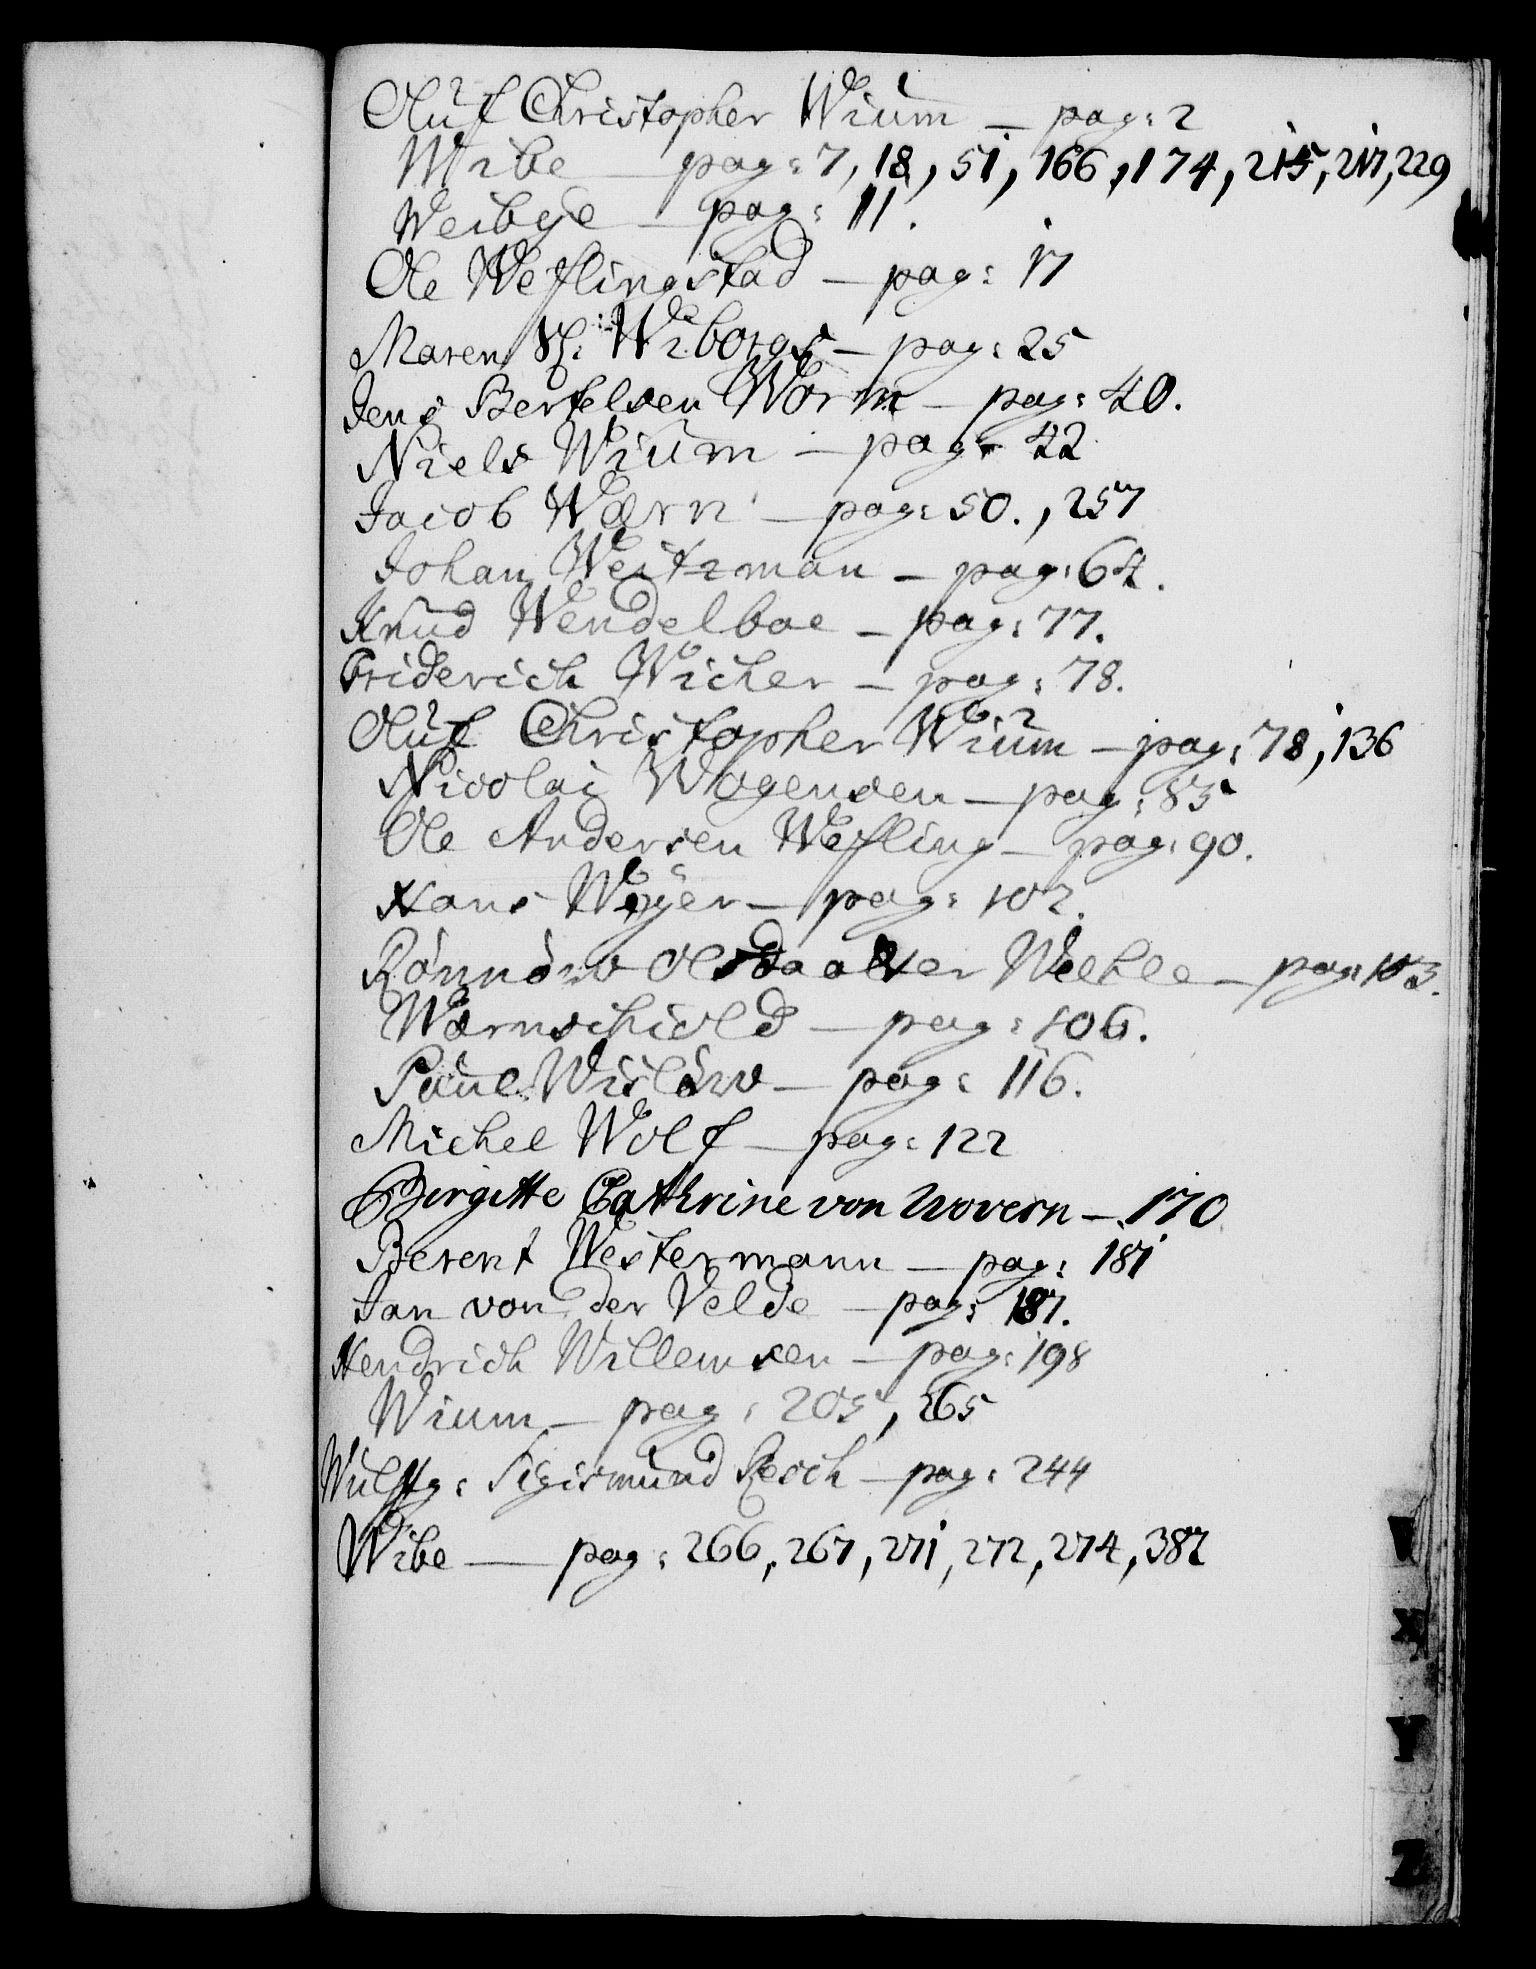 Oluf Christopher Wium — pag: 2
Wibe — pag: 7, 18, 51, 166, 174, 215, 217, 229
Weibye — pag: 11.
Ole Weflingstad — pag: 17
Maren Wiborgs — pag: 25
Jens Bertelsen Worm — pag: 40.
Niels Wium — pag: 42
Jacob Wærn — pag: 50., 257
Johan Weitzman — pag: 64.
Knud Wendelboe — pag: 77.
Friderich Wicher — pag: 78.
Oluf Christopher Wium — pag: 78, 136
Nicolai Wogensen — pag: 85
Ole Andersen Wefling — pag: 90.
Hans Weyer — pag: 102.
Rönnöw Olsdaatter Wehle — pag: 103.
Wærnschiold — pag: 106.
Paul Wislöw — pag: 116.
Michel Wolf — pag: 122
Birgitte Cathrine von Wovern — 170
Berent Westermann — pag: 181
Jan von der Velde — pag: 187.
Hendrich Willemsen — pag: 198
Wium — pag: 205, 265
Wulffg: Sigismund Resch — pag: 244
Wibe — pag: 266, 267, 271, 272, 274, 387
V
X
Y
Z